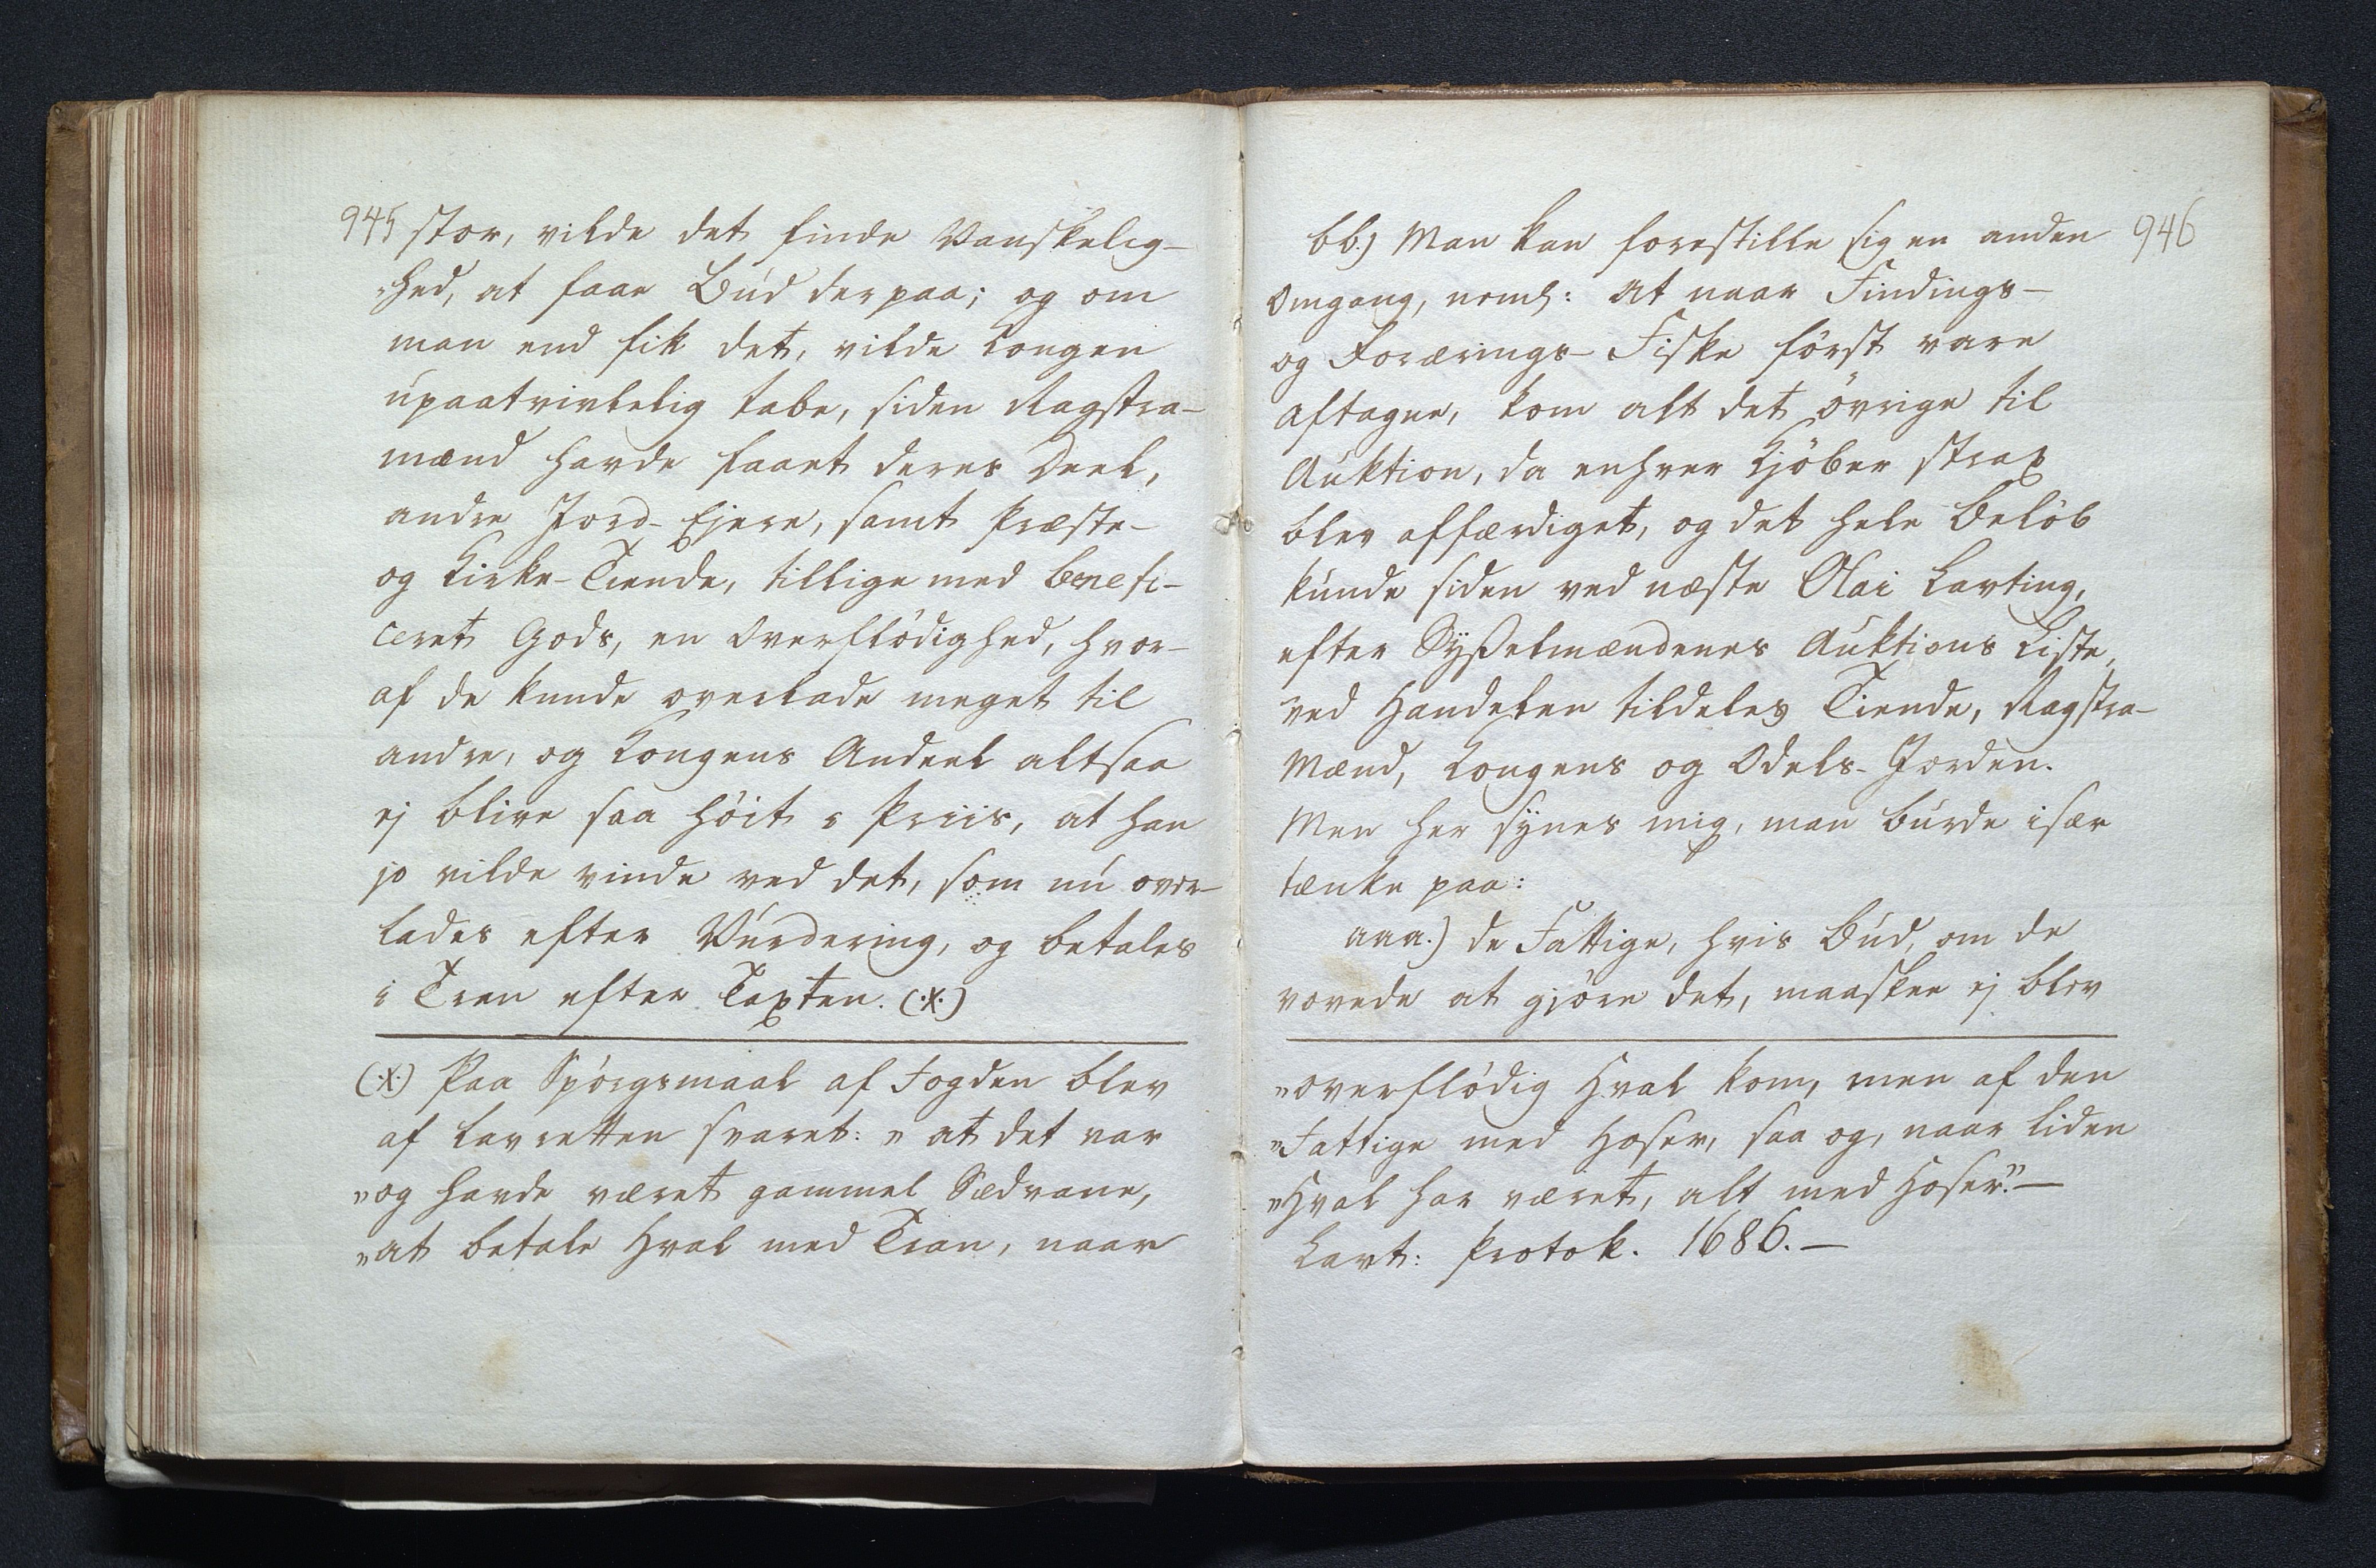 945
stor, vilde det finde Vanskelig-
-hed, at faae Bud derpaa; og om
man end fik det, vilde Kongen
upaatvivlelig tabe, siden Ragstra-
mænd havde faaet deres Deel,
andre Jord-Ejere, samt Præste-
og Kirke-Tiende, tillige med benefi-
ceret Gods, en Overflödighed, hvor-
af de kunde overlade meget til
andre, og Kongens Andeel altsaa
ej blive saa höit i Priis, at han
jo vilde vinde ved det, som nu over-
lades efter Vurdering, og betales
i Tran efter Taxten. (.X.)
(.X.) Paa Spörgsmaal af Fogden blev
af Lavretten svaret: „at det var
„og havde været gammel Sædvane,
„at betale Hval med Tran, naar
946
bb.) Man kan forestille sig en anden
Omgang, neml: at naar Findings-
og Forærings-Fiske först vare
aftagne, kom alt det övrige til
Auktion, da enhver Kjöber strax
blev affærdiget, og det hele Belöb
kunde siden ved næste Olai Lavting,
efter Sysselmændenes Auktions Liste,
ved Handelen tildeles Tiende, Ragstra-
Mænd, Kongens og Odels-Jorden.
Men her synes mig, man burde især
tænke paa:
aaa.) de Fattige, hvis Bud, om de
vovede at gjöre det, maaskee ej blev
„overflödig Hval kom, men af den
„Fattige med Hoser, saa og, naar liden
„Hval har været, alt med Hoser.” —
Lavt: Protok. 1686. —